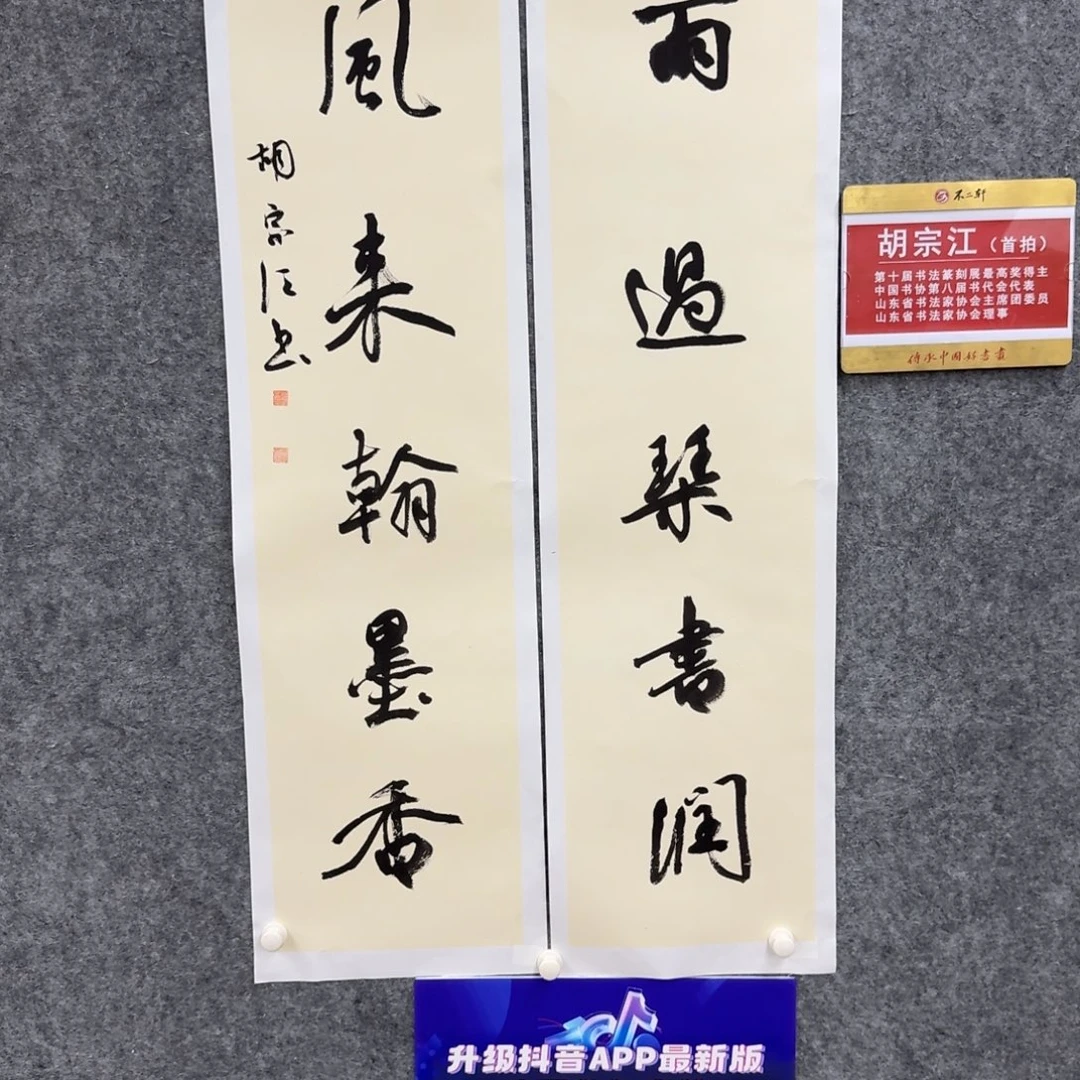 雨過琴書潤
風来翰墨香
胡宗江书
不二轩
胡宗江（首拍）
第十届书法篆刻展最高奖得主
中国书协第八届书代会代表
山东省书法家协会主席团委员
山东省书法家协会理事
传承中国好書畫
升级抖音APP最新版